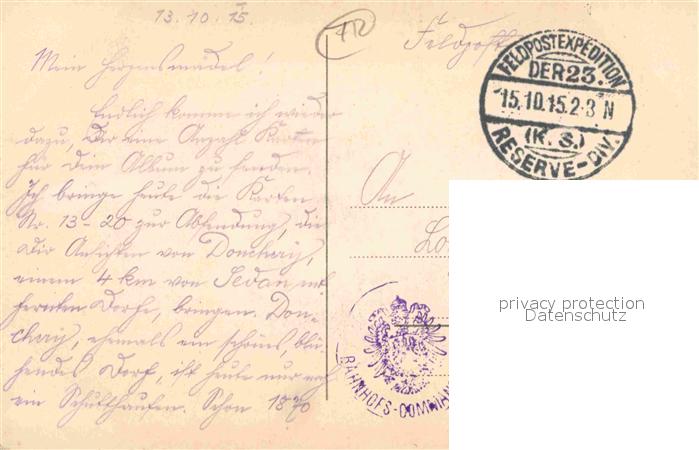 13.10.15.
712
Feldpost
Mein Herzensmädel!
Endlich komme ich wieder
dazu, Dir eine Anzahl Karten
für Dein Album zu senden.
Ich bringe heute die Karten
Nr. 13-20 zur Absendung, die
Dir Ansichten von Donchéry,
einem 4 km von Sedan ent
fernten Dorfe, bringen. Don-
chéry, ehemals ein schönes, blü-
hendes Dorf, ist heute nur noch
ein Schutthaufen. Schon 1870
FELDPOSTEXPEDITION
DER 23.
15.10.15.2-3 N
(K. S.)
RESERVE-DIV.
An
BAHNHOFS-COMMAN
privacy protection
Datenschutz